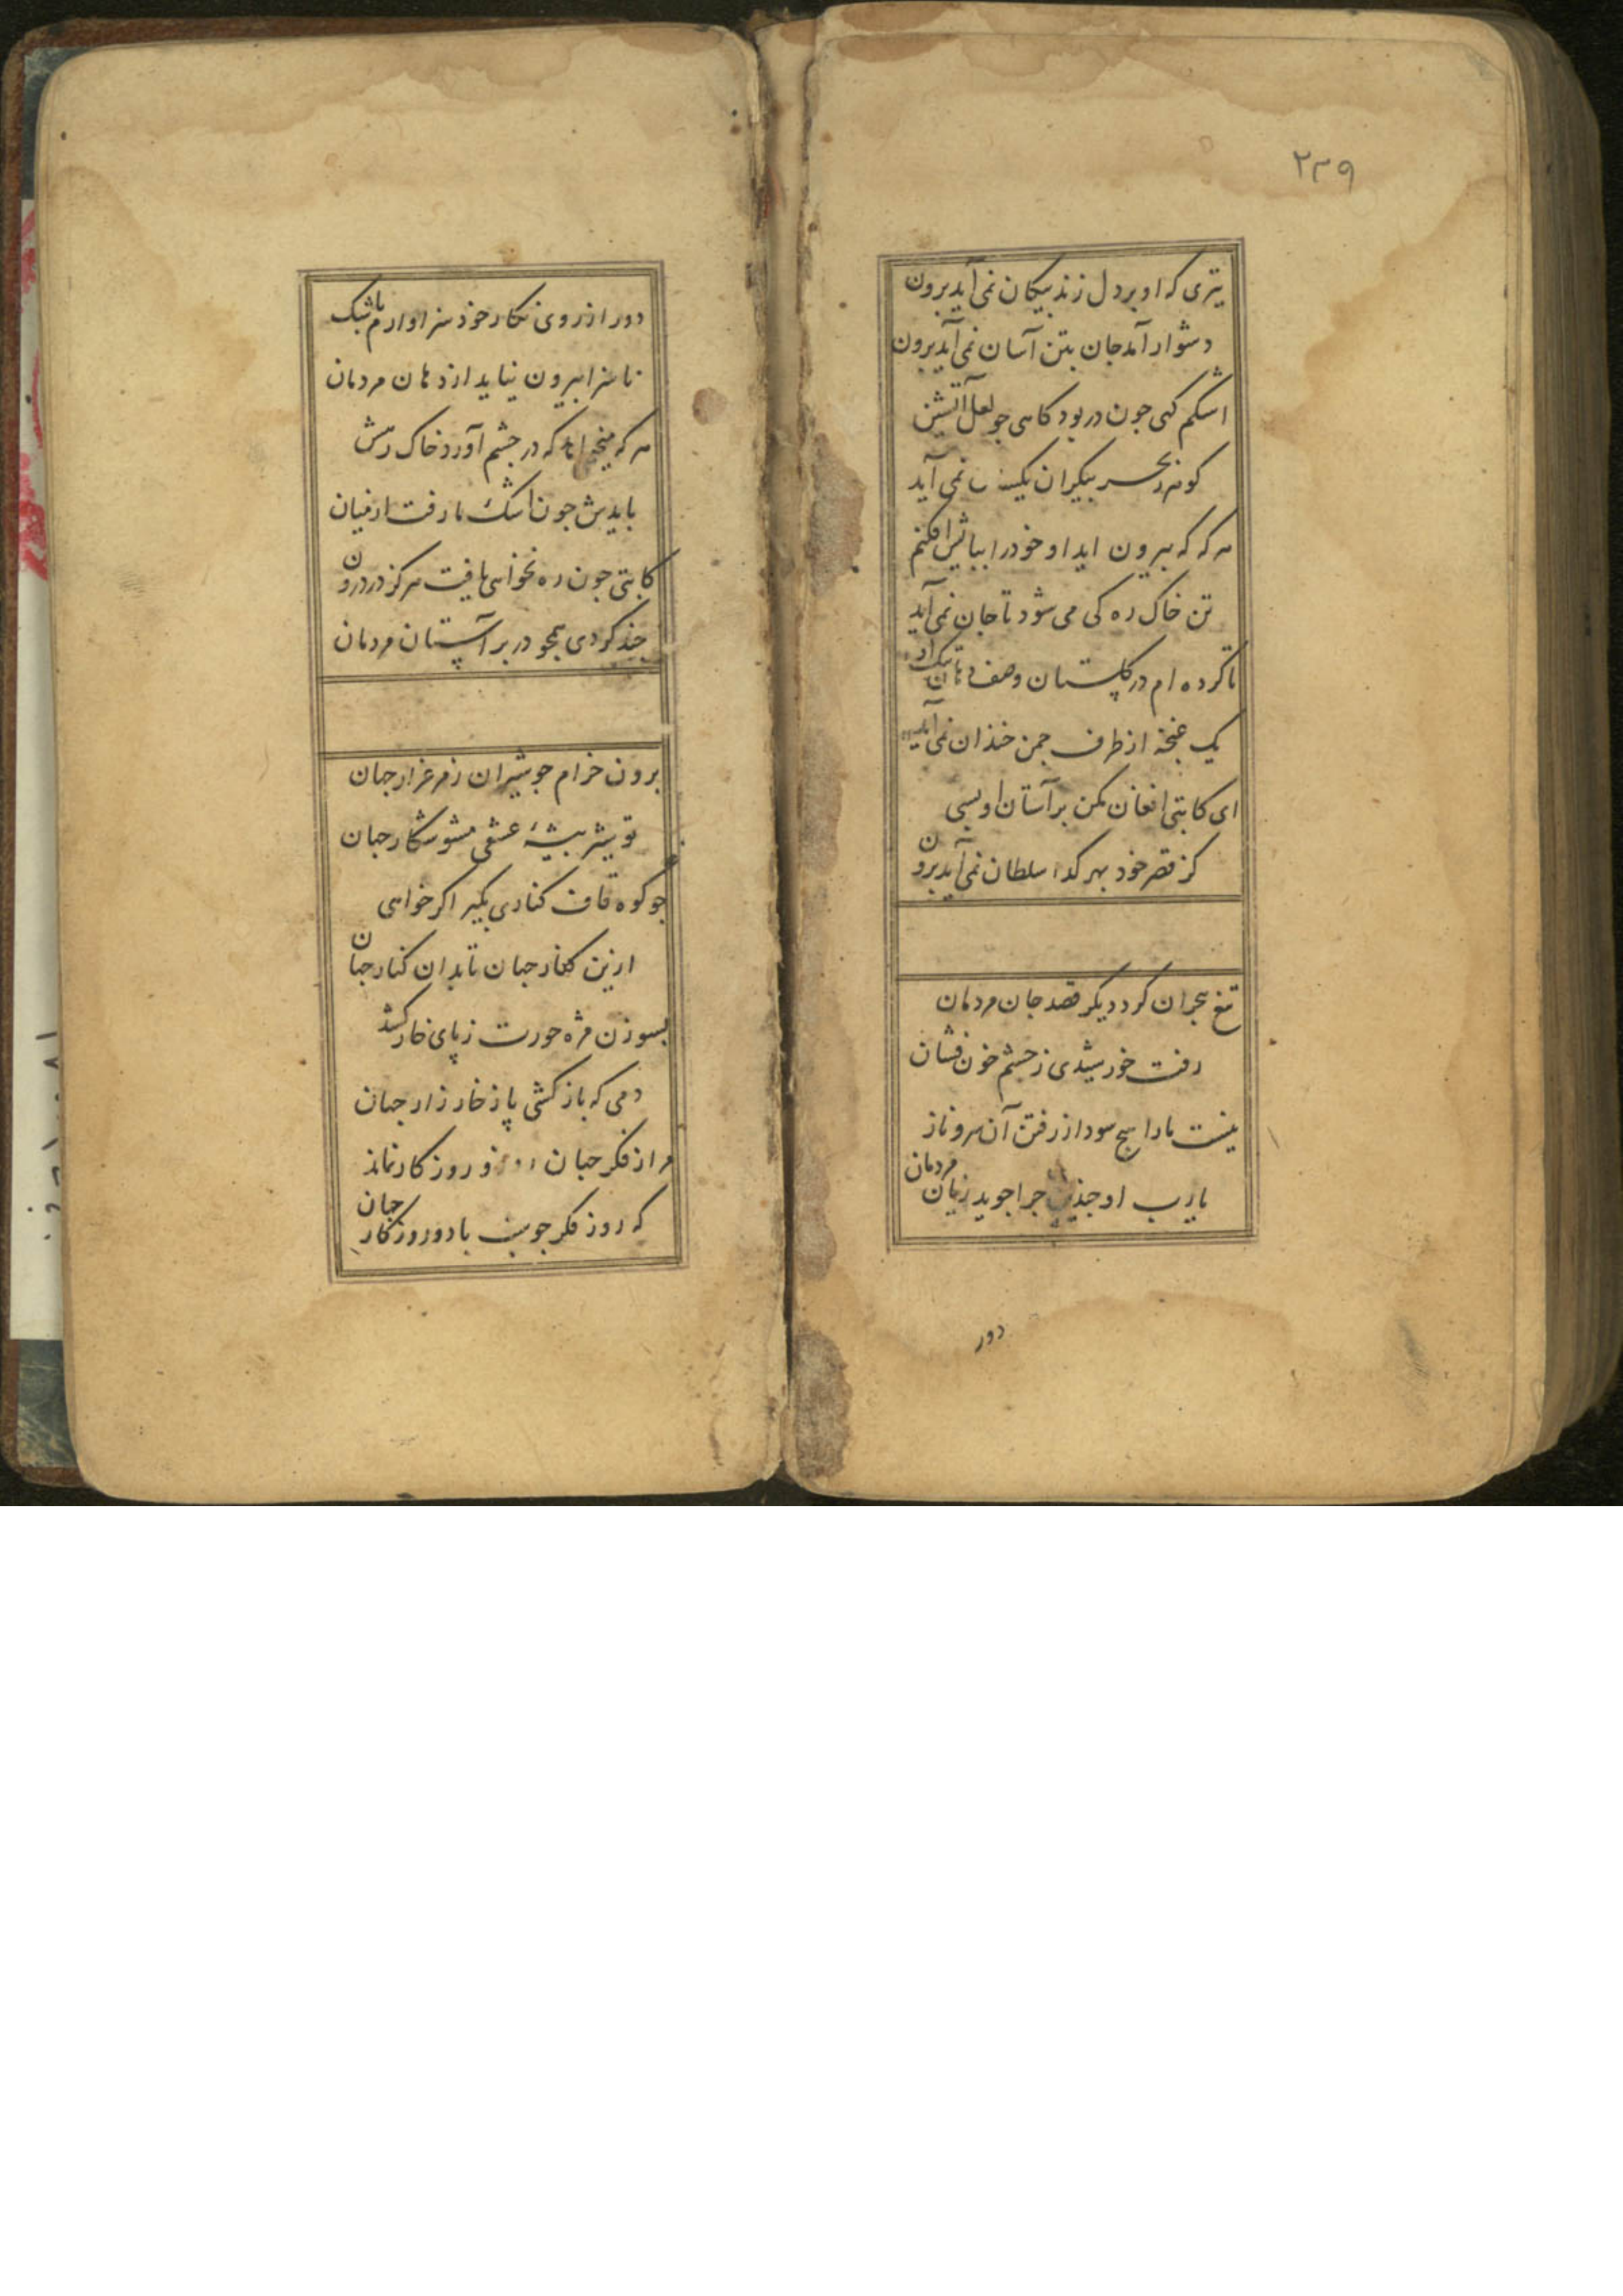 ۲۳۹
تیری که او بر دل زند پیکان نمی آید برون
دشوار آمد جان بتن آسان نمی آید برون
اشکم کهی جون در بود کاهی جو لعل آتشین
کوهر ز بحر بیکران یکسان نمی آید
هر که که بیرون اید او خود را بپایش افکنم
تن خاک ره کی می شود تا جان نمی آید
تا کرده ام در کلستان وصف دهان تنک او
یک غنجه از طرف جمن خندان نمی آید
ای کاتبی افغان مکن بر آستان او بسی
کز قصر خود بهر کدا سلطان نمی آید برون
تیغ هجران کرد دیکر قصد جان مردمان
رفت خورشیدی ز جشم خون فشان
نیست ما را هیج سود از رفتن آن سرو ناز
یا رب او جندین جرا جوید زیان مردمان
دور
دور از روی نکار خود سزاوارم بشک
ناسزا بیرون نیاید از دهان مردمان
هر که میخواهد که در جشم آورد خاک رهش
بایدش جون اشک ما رفت از میان
کاتبی جون ره نخواهی یافت هرکز در درون
جند کردی همجو در بر آستان مردمان
برون خرام جو شیران ز مرغزار جهان
تو شیر بیشهٔ عشقی مشو شکار جهان
جو کوه قاف کناری بکیر اکر خواهی
ازین کنار جهان تا بدان کنار جهان
بسوزن مژه حورت ز پای خار کشد
دمی که باز کشی پا ز خارزار جهان
مرا ز فکر جهان روز و روزکار نماند
که روز فکر جو شب باد و روزکار جهان